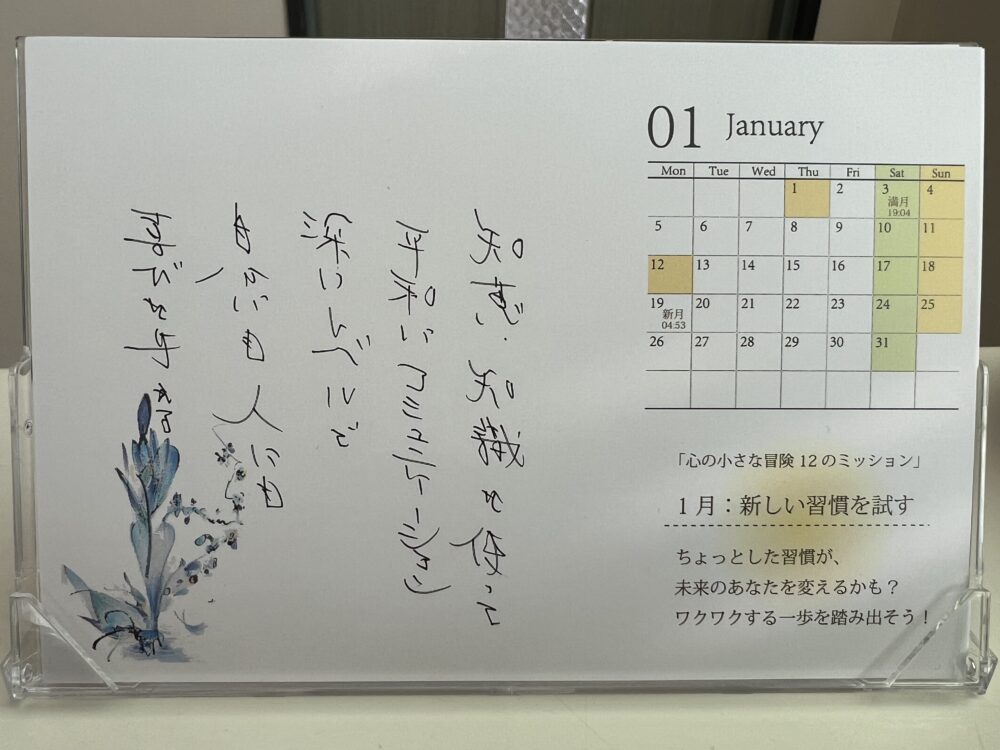 01 January
Mon Tue Wed Thu Fri Sat Sun
1 2 3 4
満月
19:04
5 6 7 8 9 10 11
12 13 14 15 16 17 18
19 20 21 22 23 24 25
新月
04:53
26 27 28 29 30 31
「心の小さな冒険 12 のミッション」
1 月：新しい習慣を試す
ちょっとした習慣が、
未来のあなたを変えるかも？
ワクワクする一歩を踏み出そう！
知恵、知識を使って
コミュニケーション
深いレベルで
自分にも人にも
を与える